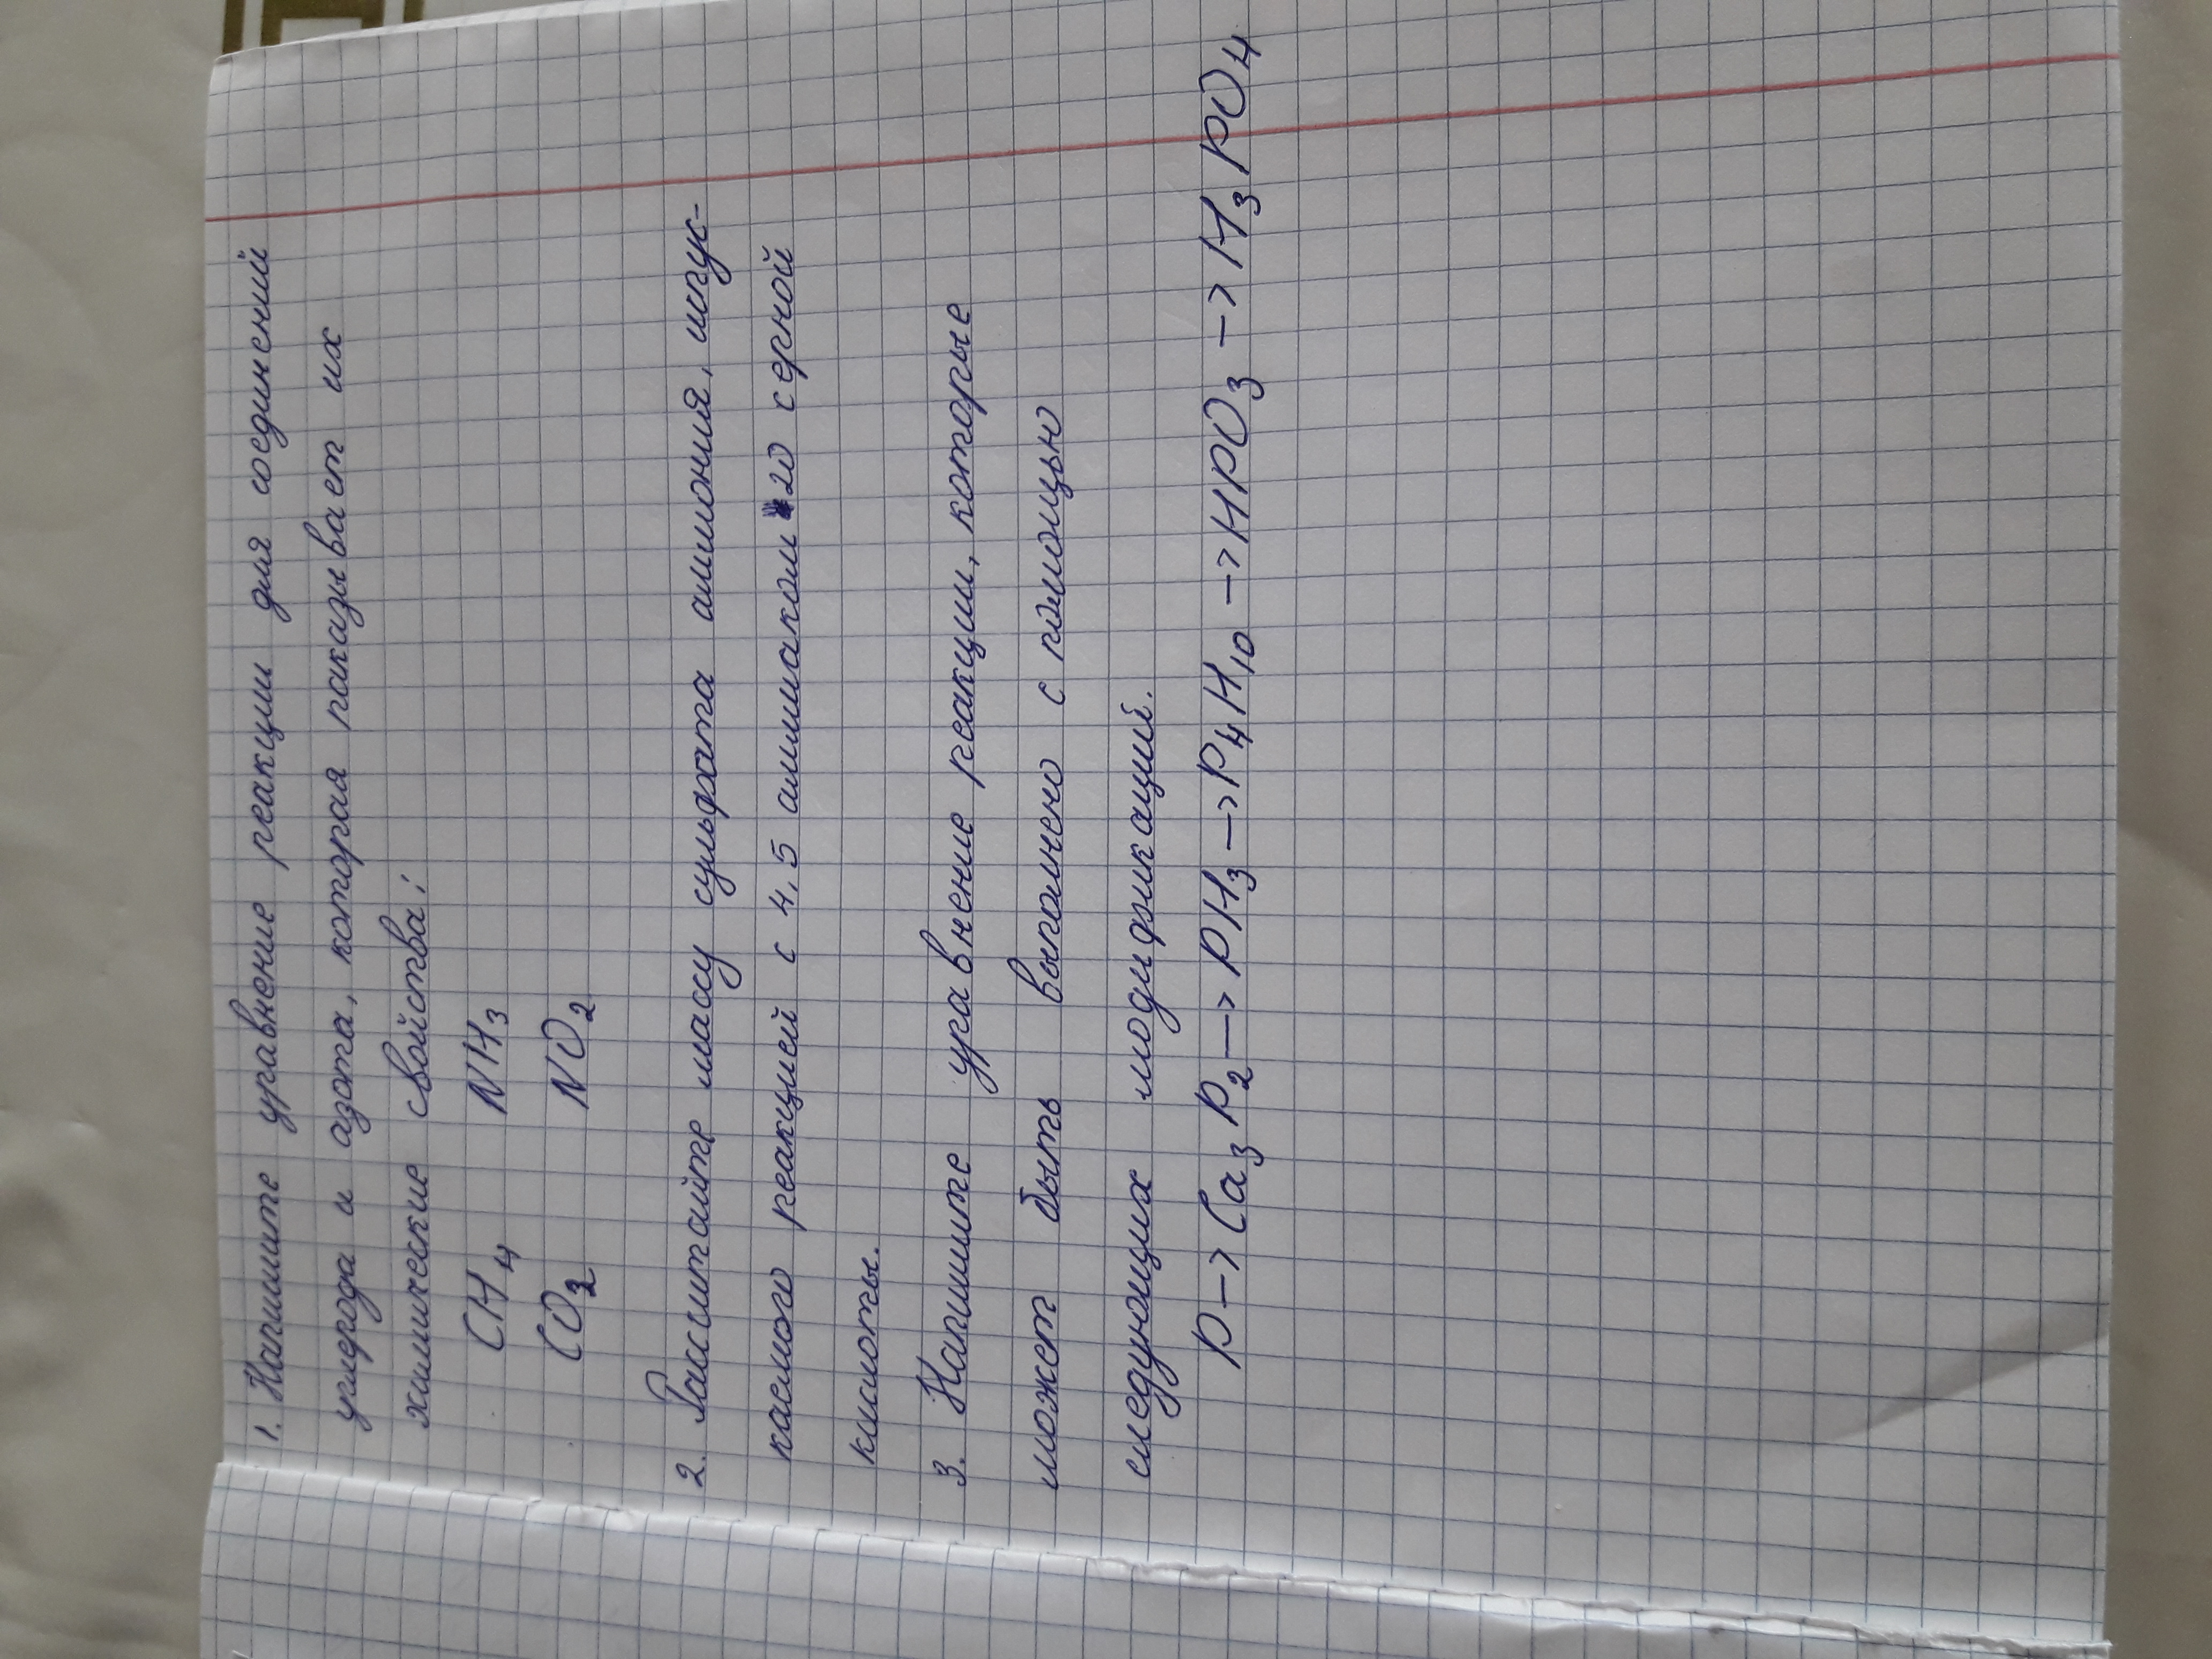 1. Напишите уравнение реакции для соединений
углерода и азота, которая паказывает их
химические свойства:
CH4 NH3
CO2 NO2
2. Рассчитайте массу сульфата аммония, ипус-
каемого реакцией с 4,5 аммиаком 20 серной
кислоты.
3. Напишите уравнение реакции, которые
может быть выполнено с помощью
следующих модификаций.
P → Ca3P2 → PH3 → P4H10 → HPO3 → H3PO4